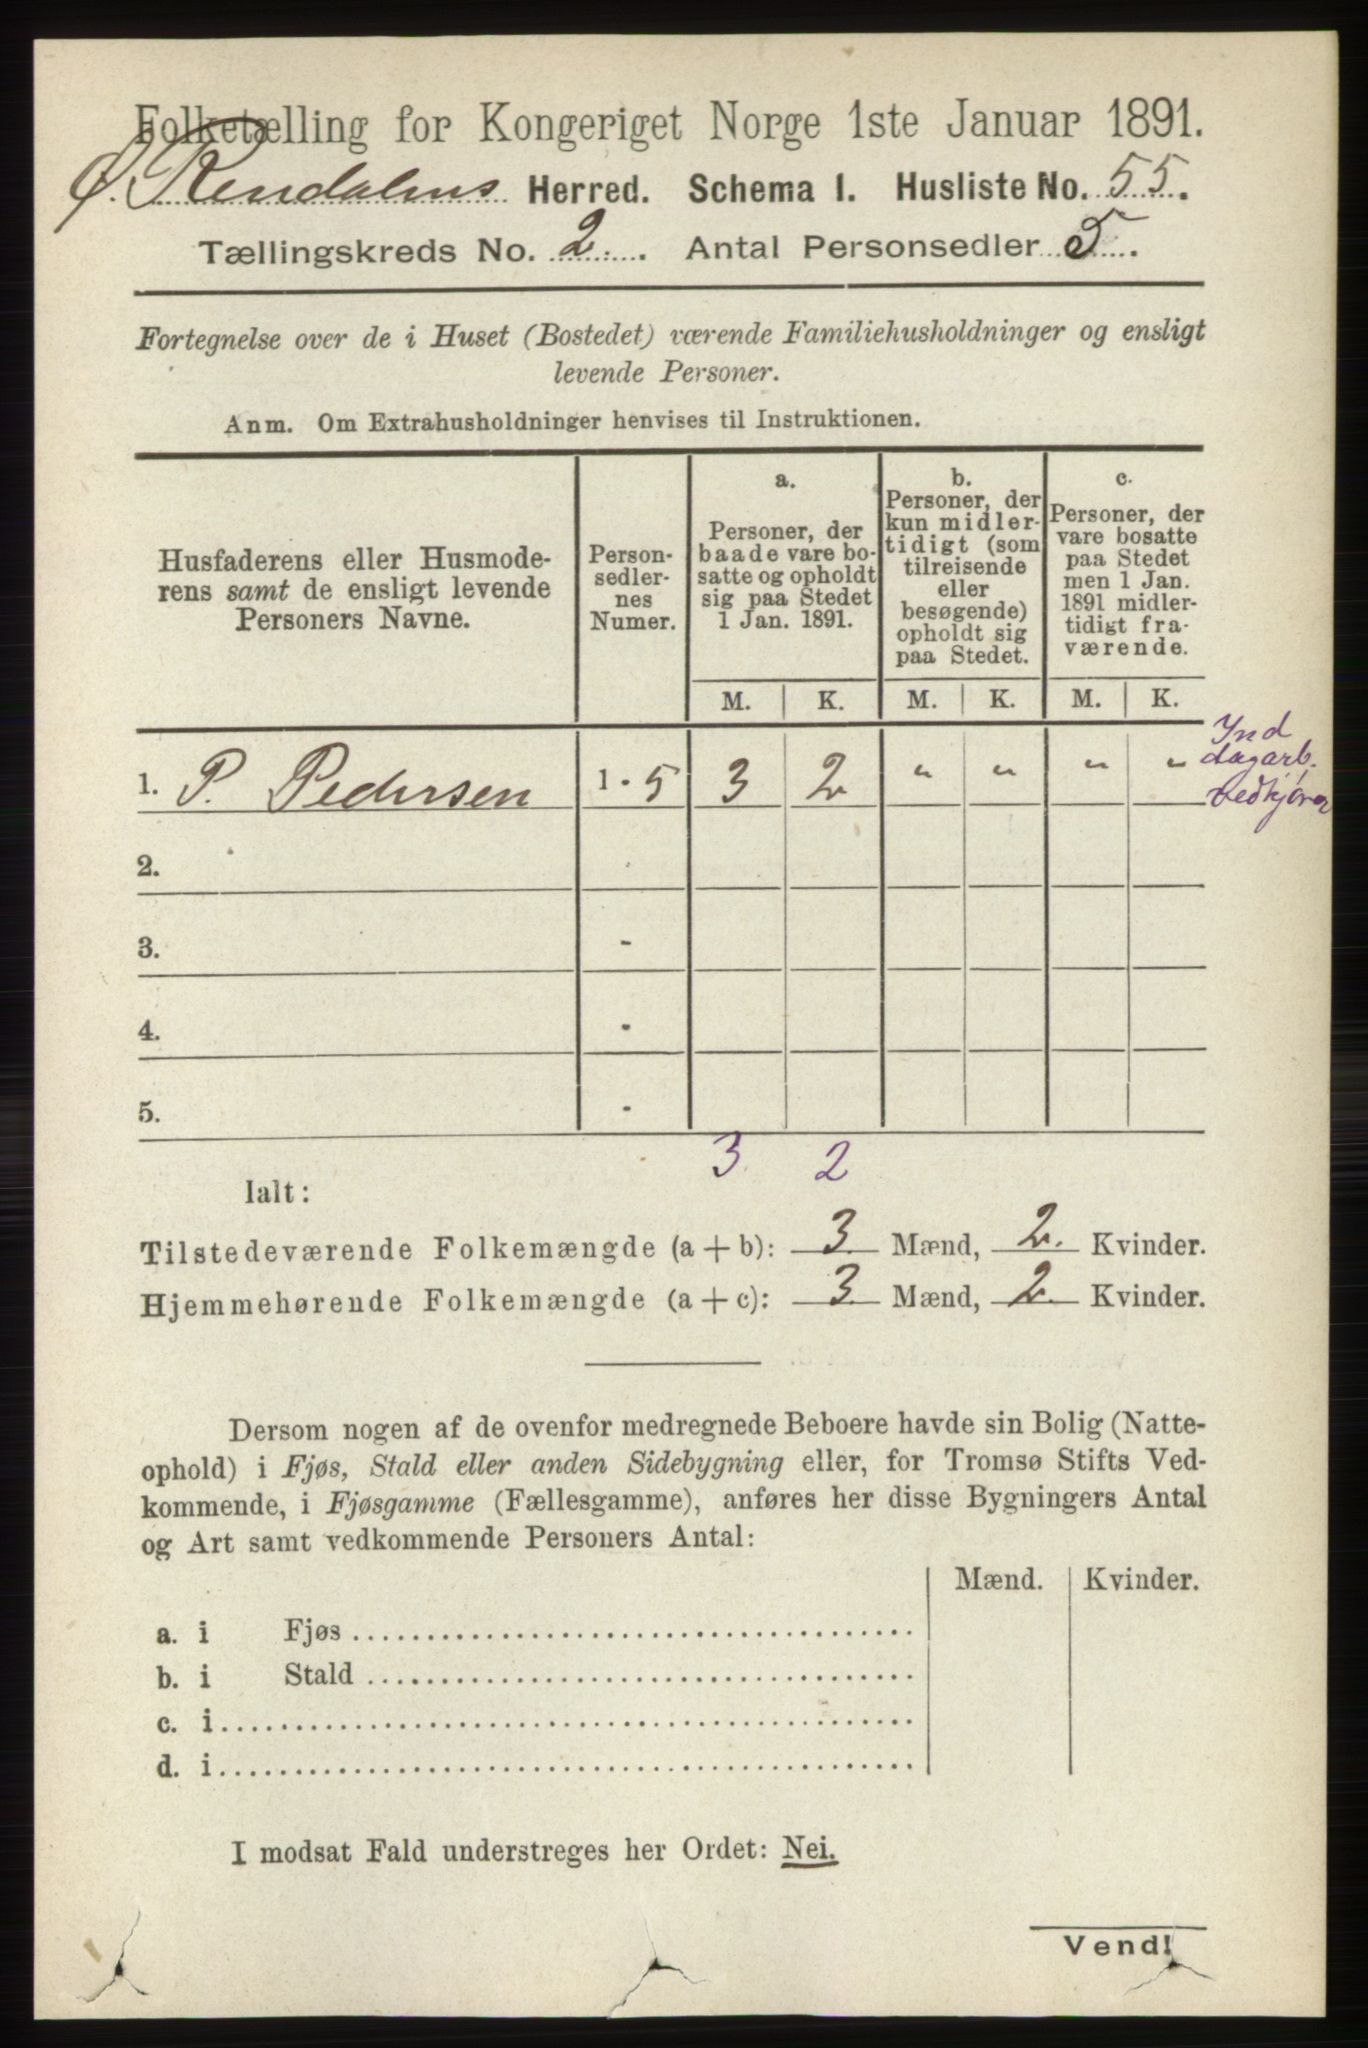 Folketælling for Kongeriget Norge 1ste Januar 1891.
Ø. Rendalens Herred. Schema I. Husliste No. 55.
Tællingskreds No. 2. Antal Personsedler 5.
Fortegnelse over de i Huset (Bostedet) værende Familiehusholdninger og ensligt
levende Personer.
Anm. Om Extrahusholdninger henvises til Instruktionen.
Husfaderens eller Husmode-
rens samt de ensligt levende
Personers Navne.
Person-
sedler-
nes
Numer.
a.
Personer, der
baade vare bo-
satte og opholdt
sig paa Stedet
1 Jan. 1891.
b.
Personer, der
kun midler-
tidigt (som
tilreisende
eller
besøgende)
opholdt sig
paa Stedet.
c.
Personer, der
vare bosatte
paa Stedet
men 1 Jan.
1891 midler-
tidigt fra-
værende.
M. K. M. K. M. K.
1. P. Pedersen 1 - 5 3 2 " " " "
Ind
dagarb.
vedkjører
2. -
3. -
4. -
5. -
3 2
Ialt:
Tilstedeværende Folkemængde (a + b): 3 Mænd, 2 Kvinder.
Hjemmehørende Folkemængde (a + c): 3 Mænd, 2 Kvinder.
Dersom nogen af de ovenfor medregnede Beboere havde sin Bolig (Natte-
ophold) i Fjøs, Stald eller anden Sidebygning eller, for Tromsø Stifts Ved-
kommende, i Fjøsgamme (Fællesgamme), anføres her disse Bygningers Antal
og Art samt vedkommende Personers Antal:
Mænd. Kvinder.
a. i Fjøs
b. i Stald
c. i
d. i
I modsat Fald understreges her Ordet: Nei.
Vend!